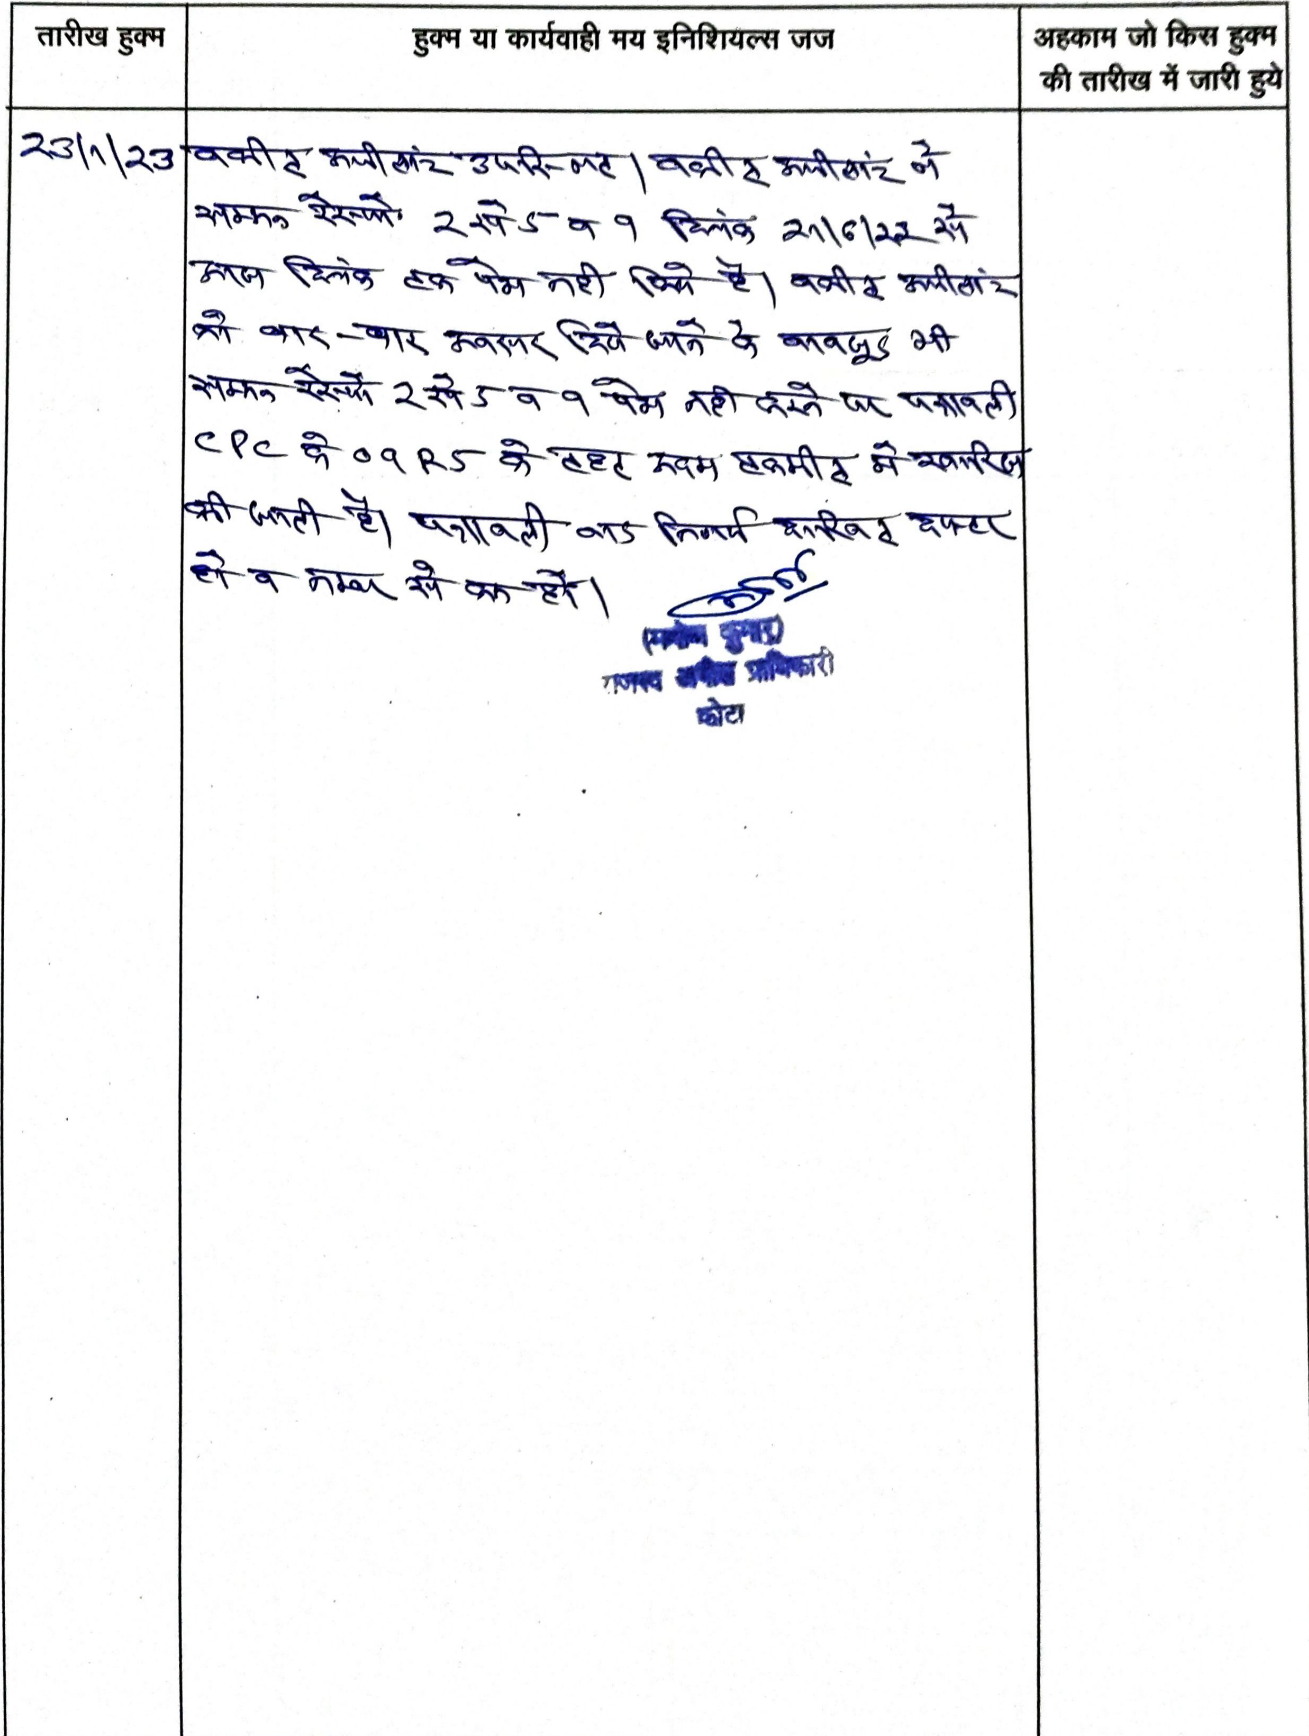 तारीख हुक्म
हुक्म या कार्यवाही मय इनिशियल्स जज
अहकाम जो किस हुक्म
की तारीख में जारी हुये
23/1/23
वकील अपीलांट उपस्थित। वकील अपीलांट ने
सम्मन रेस्पो 2 से 5 व 9 दिनांक 21/6/22 से
आज दिनांक तक पेश नही किये है। वकील अपीलांट
को बार-बार अवसर दिये जाने के बावजूद भी
सम्मन रेस्पो 2 से 5 व 9 पेश नही करने पर पत्रावली
CPC के 09 R5 के तहत अदम तकमील मे खारिज
की जाती है। पत्रावली बाद निर्णय दाखिल दफ्तर
हो व नम्बर से कम हो।
(मनोज कुमार)
राजस्व अपील प्राधिकारी
कोटा